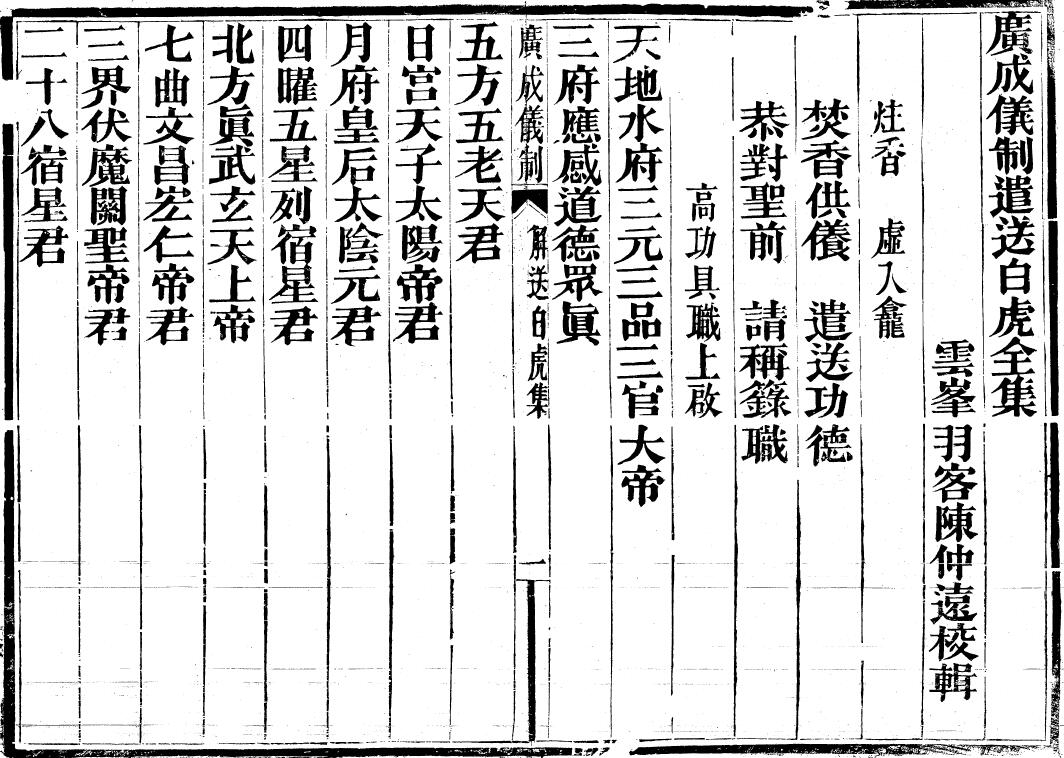 廣成儀制遣送白虎全集
雲峯羽客陳仲遠校輯
炷香　虛入龕
焚香供養　遣送功德
恭對聖前　請稱籙職
高功具職上啟
天地水府三元三品三官大帝
三府應感道德眾眞
廣成儀制　解送白虎集　一
五方五老天君
日宮天子太陽帝君
月府皇后太陰元君
四曜五星列宿星君
北方眞武玄天上帝
七曲文昌宏仁帝君
三界伏魔關聖帝君
二十八宿星君